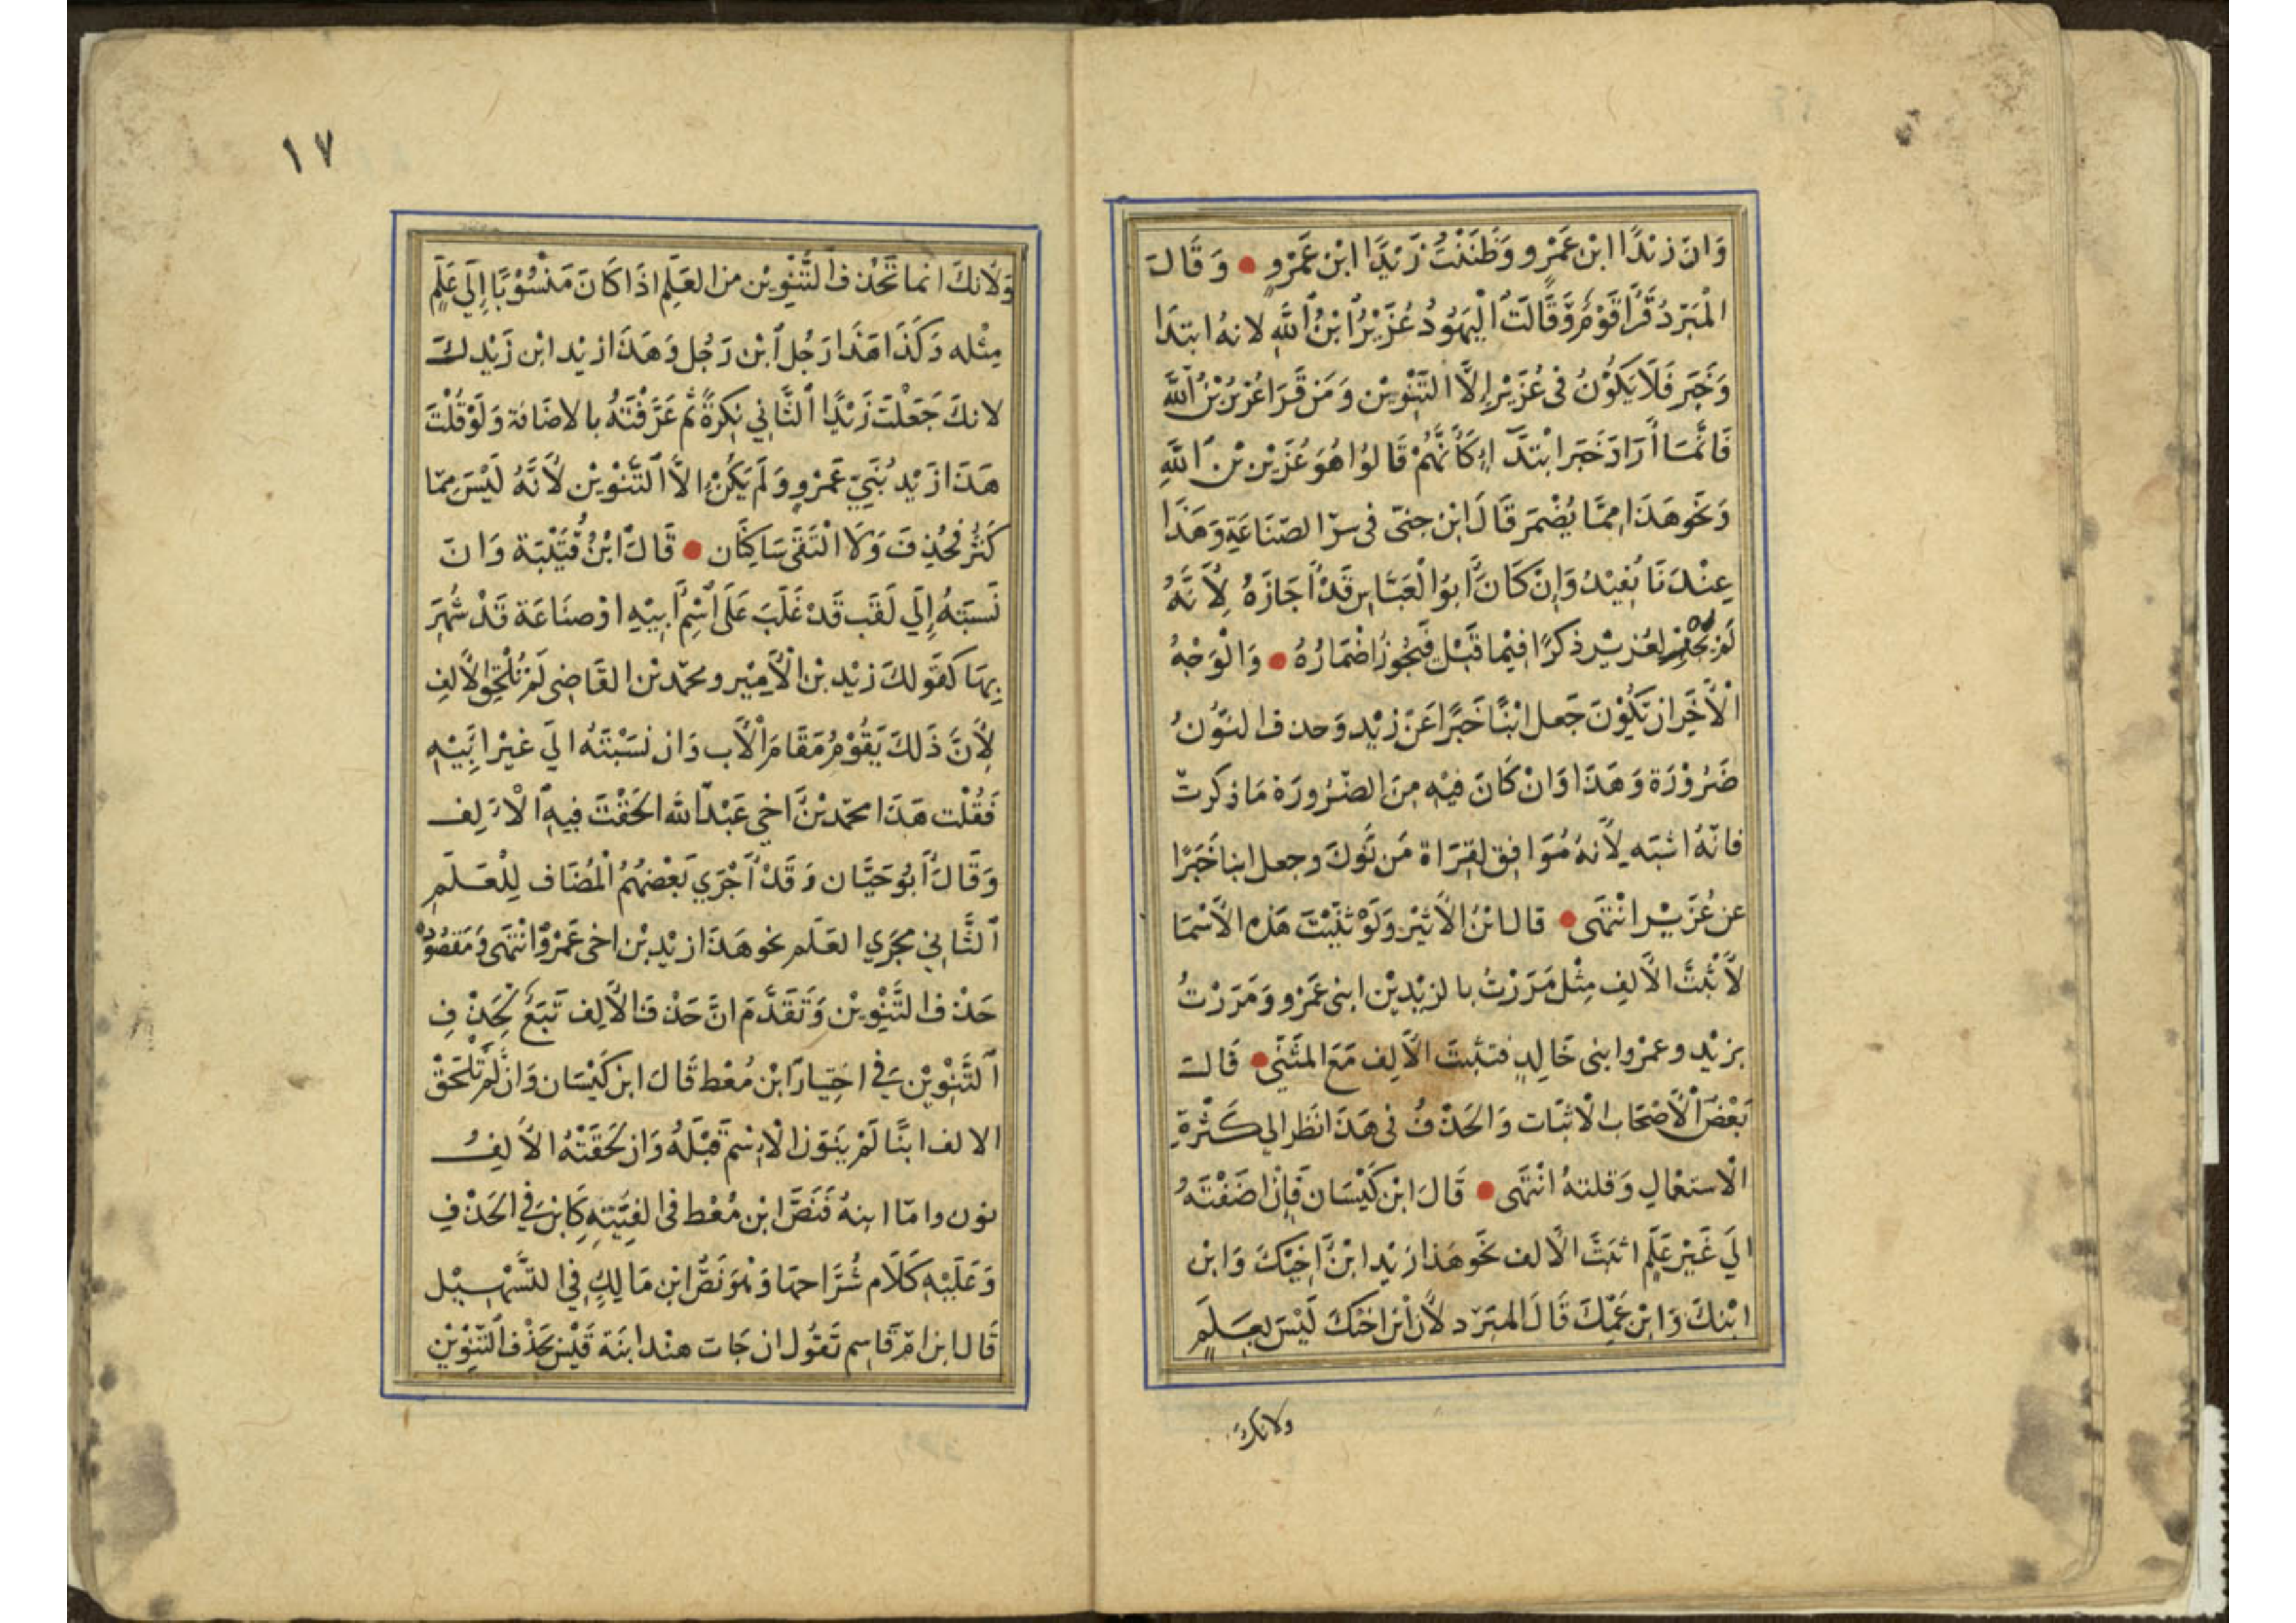 وَانَ زيْدًا ابْن عَمْرو وَظَنَنْتُ زَيْدًا ابْن عَمْروٍ وَقَالَ
الْمُبَرّدُ قَرَأ قَوْمٌ وَّقَالَتِ الْيَهُودُ عُزَيْرٌ ابْنُ اللَّهِ لانهُ ابتدَا
وَخَبَر فَلَا يَكُوْنُ فى عُزَيْرٍ إِلَّا التَّنْوِيْن وَمَن قَرَا عُزَيْرُ بْنُ اللَّه
فَانَّمَا أرَادَ خَبَر ابْتدَآءٍ كَأَنَّهُمْ قَالوُا هُوَ عُزَيْرُ بْن اللَّهِ
وَنَحْو هَذَا مِمَّا يُضْمَر قَالَ ابْن جِنىّ فى سرّ الصّنَاعَةِ وَهَذَا
عِنْدَنَا بَعِيْدٌ وَإِنْ كَانَ أبوُ الْعَبَّاس قَدْ أجَازَهُ لِأنَّهُ
لَمْ يَجْرِ لعُزيْر ذكرًا فيْما قَبْل فَيَجُوزُ اضْمَارُهُ وَالْوَجْهُ
الْأخَر ان يَكُوْنَ جَعل ابْنًا خَبَرًا عَنْ عُزيْر وَحذف التَّنْويْن
ضَرُوْرَة وَهَذَا وَانْ كَانَ فِيْهِ مِنَ الضّرُورَة مَا ذكرتّ
فانّهُ اشبَه لِأنهُ مُوَافِق لقِرَاة مَن نَّوَّنَ وجعل ابنا خَبَرًا
عن عُزَيْر انْتَهَى قالَ ابْنُ الأَثيْر وَلَوْ ثنَّيْتَ هَذه الأَسْمَا
لَأَثْبَتَّ الأَلِف مِثْل مَرَرْتُ بالزيْديْن ابنى عَمْرو وَمَرَرْتُ
بزيْد وعمرْو ابنى خَالِدٍ فتثبتَ الأَلِف مَعَ المثَنَّى قَالَ
بَعْضُ الْأَصْحَاب الْاثبَات وَالحَذْفُ فى هَذَا نظَر الي كَثْرةِ
الْاستعْمالِ وَقلتهُ انْتَهَى قَالَ ابْن كَيْسَان فَإِنْ اضَفْتَهُ
الَي غَيْر عَلَمٍ اثبَتَّ الأَلف نَحْو هَذا زَيْد ابْنُ أَخِيْكَ وَابْن
ابْنكَ وَابْن عَمِّكَ قَالَ المبَرّد لأَن ابْنَ اخْتكَ لَيْسَ بِعَلَمٍ
ولانك
١٧
وَلأنكَ انما تَحْذف التَّنْوِيْن من العَلَمِ اذَا كَانَ مَنْسُوْبًا إِلَي عَلَمٍ
مِثْله وَكَذَا هَذَا رَجُل ابْن رَجُل وَهَذَا زيْد ابْن زَيْدكَ
لانكَ جَعَلْتَ زَيْدًا الثَّانِي نكِرَةً ثُم عَرَّفْتَهُ بالاضَافة وَلَوْ قُلْتَ
هَذَا زَيْد بُنَيّ عَمْروٍ وَلَمْ يَكُنْ إلاَّ التَّنْوِيْن لأَنَّهُ لَيْسَ مِمّا
كَثُرَ فحُذِفَ وَلَا الْتَقَى سَاكِنَان قَالَ ابْنُ قُتَيْبَة وَانَ
نَسبَتهُ إِلَي لَقَب قَدْ غَلَبَ عَلَى اسْمِ أبِيْهِ اوْ صنَاعَة قَدْ شُهِرَ
بِهَا كَقَولكَ زيْد بْن الْأَمِيْر ومحمّد بْن القَاضِى لَمْ تُلْحِق الأَلف
لِأَنَّ ذَلكَ يَقُوْمُ مَقَامَ الْأَب وَان نسَبْتَهُ الَي غيْر أبِيْهِ
فَقُلْت هَذَا محمّد بْنُ اخي عَبْد الله الحَقْتَ فِيهِ الْأَلِف
وَقَالَ أبُو حَيَّان وَقَدْ أَجْرَي بَعْضُهُمُ الْمُضَاف لِلْعَلَمِ
الثَّانِي مجرَي العَلَم نحو هَذَا زيْد بْن اخى عَمْرو انْتَهَى وَمَقصُوْدُ
حَذْف التَّنْوِيْن وَتَقَدَّمَ انَّ حَذْفَ الأَلِف تَبَع لِحَذْفِ
التَّنْوِيْن فِي اخْتِيَار ابْن مُعْط قَالَ ابْن كَيْسَان وَانْ لَّمْ تلْحَقْ
الالف ابنًا لَمْ يَنَوّن الْإِسْم قَبْلَهُ وَان لحَقَتْهُ الأَلِفُ
نون وامّا ابنهُ فَنَصَّ ابْن مُعْط فى الفِيَّتِهِ كَابْن فِي الحَذْفِ
وَعَلَيْهِ كَلَام شُرَّاحهَا وَهْوَ نَصُّ ابْن مَالِكٍ فِي التسْهِيْل
قَالَ ابْن امّ قَاسِم تَقُول ان جَات هنْد ابنَة قَيْس بحَذْف التّنْوِيْنِ